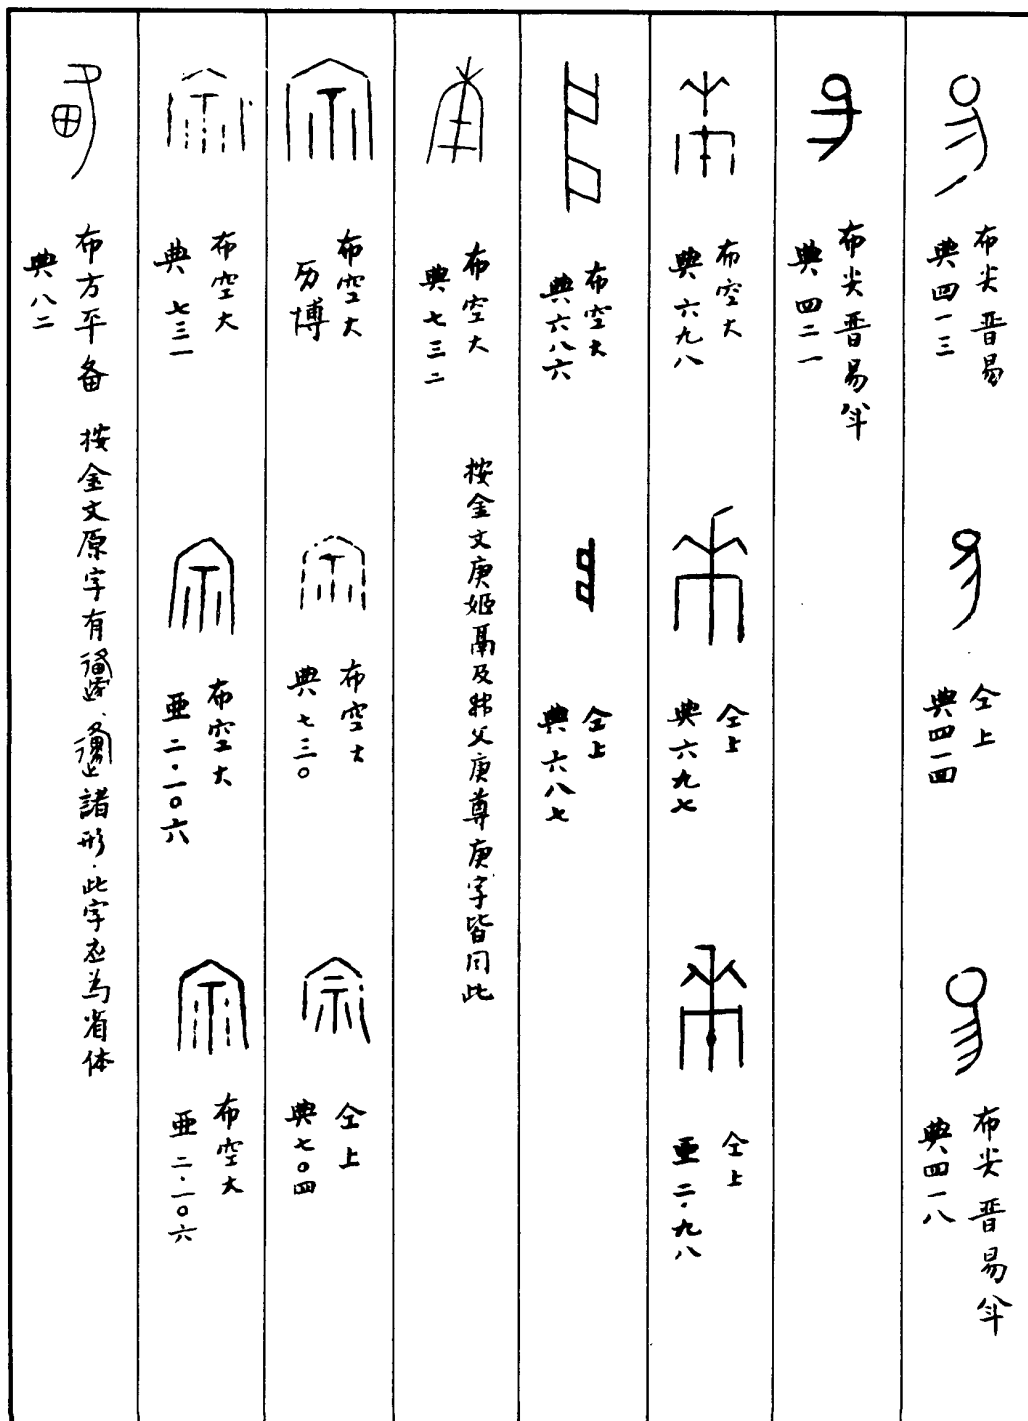 布尖晋昜
典四一三
仝上
典四一四
布尖晋昜半
典四一八
布尖晋昜半
典四二一
布空大
典六九八
仝上
典六九七
仝上
亜二·九八
布空大
典六八六
仝上
典六八七
布空大
典七三二
按金文庚姬鬲及父庚尊庚字皆同此
布空大
历博
布空大
典七三〇
仝上
典七〇四
布空大
典七三一
布空大
亜二·一〇六
布空大
亜二·一〇六
布方平备
典八二
按金文原字有諸形·此字应為省体